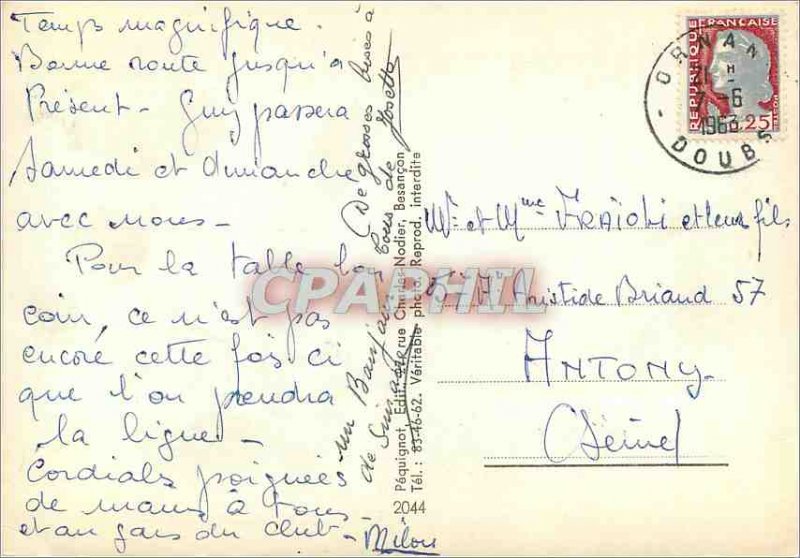 Temps magnifique.
Bonne route jusqu'à
Présent - Guy passera
Samedi et dimanche
avec nous -
Pour la table
coin, ce n'est pas
encore cette fois ci
que l'on prendra
la ligne -
Cordials poignées
de mains à tous
et au gars du club -
Milou
De grosses bises à
tous de Josette
un Bonjour
de
Péquignot, Edit., rue Charles-Nodier, Besançon
Tél. : 83-46-62. Véritable photo. Reprod. interdite
2044
CPARPHIL
REPUBLIQUE FRANÇAISE
POSTES
0,25
ORNANS
21 H
7-6
1963
DOUBS
Mr et Mme et leurs fils
Aristide Briand 57
ANTONY
(Seine)